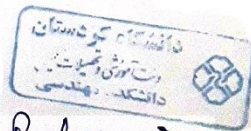 دانشگاه کردستان
معاونت آموزشی و تحصیلات تکمیلی
دانشکده مهندسی